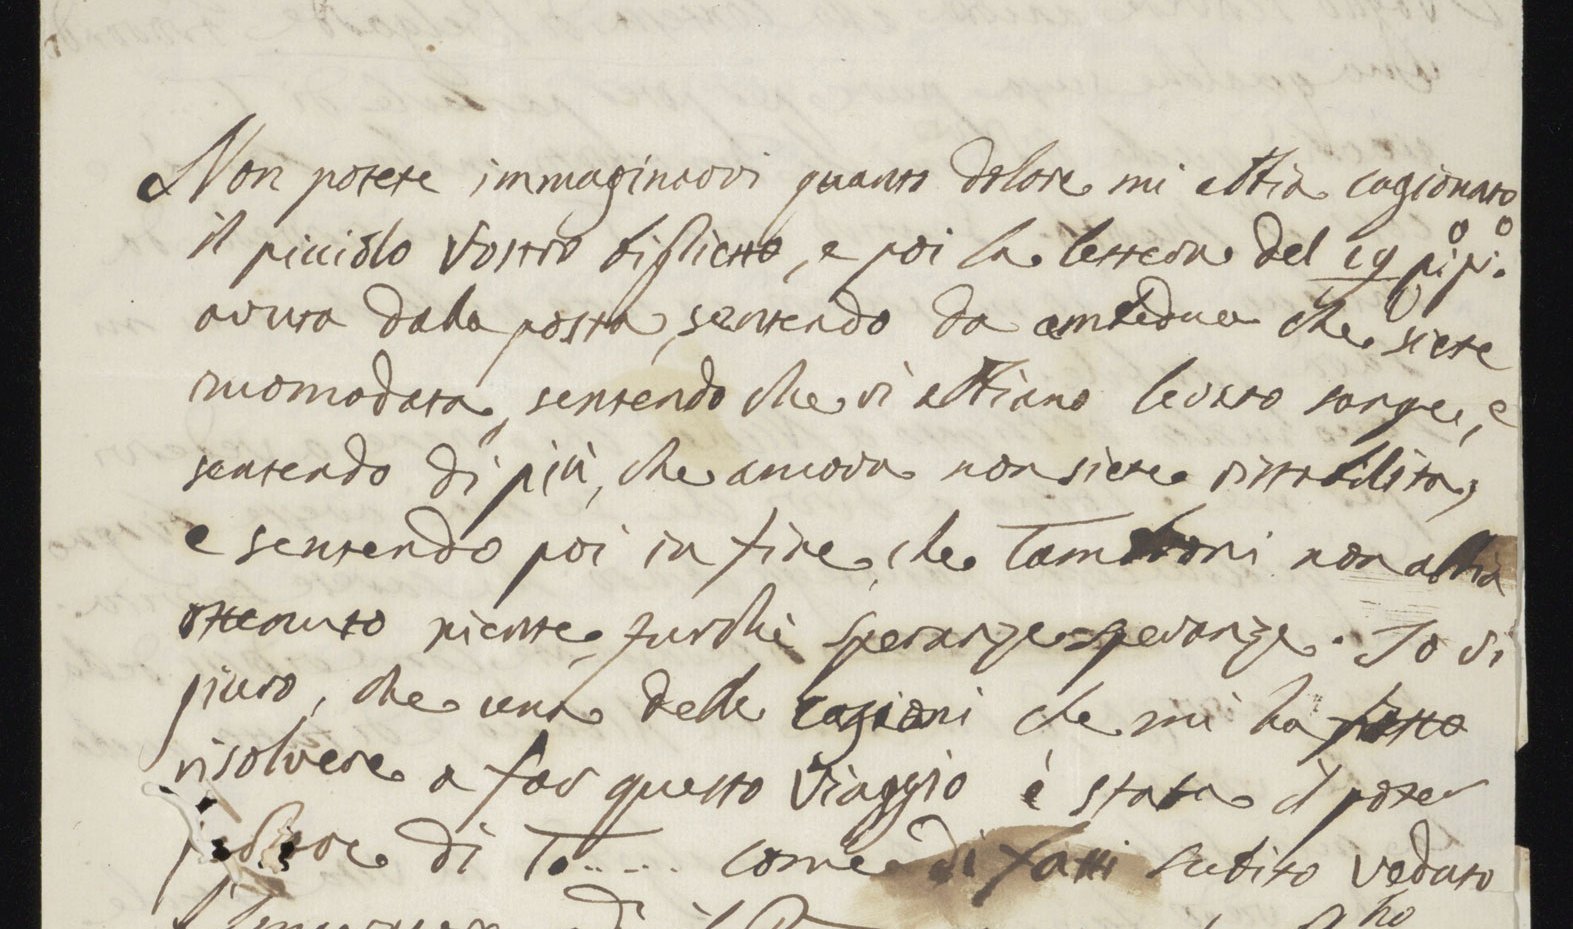 Non potete immaginarvi quanto dolore mi abbia cagionato
il picciolo vostro biglietto, e poi la lettera del 29 p.º p.º
avuta dalla posta, sentendo da ambedue che siete
incomodata, sentendo che vi abbiano levato sangue, e
sentendo di più, che ancora non siete ristabilita,
e sentendo poi in fine, che Tambroni non abbia
ottenuto niente, furchè speranze speranze. Io vi
giuro, che una delle cagioni che mi ha fatto
risolvere a far questo viaggio è stata il poter
di Ta..... come di fatti subito veduto
di il ho